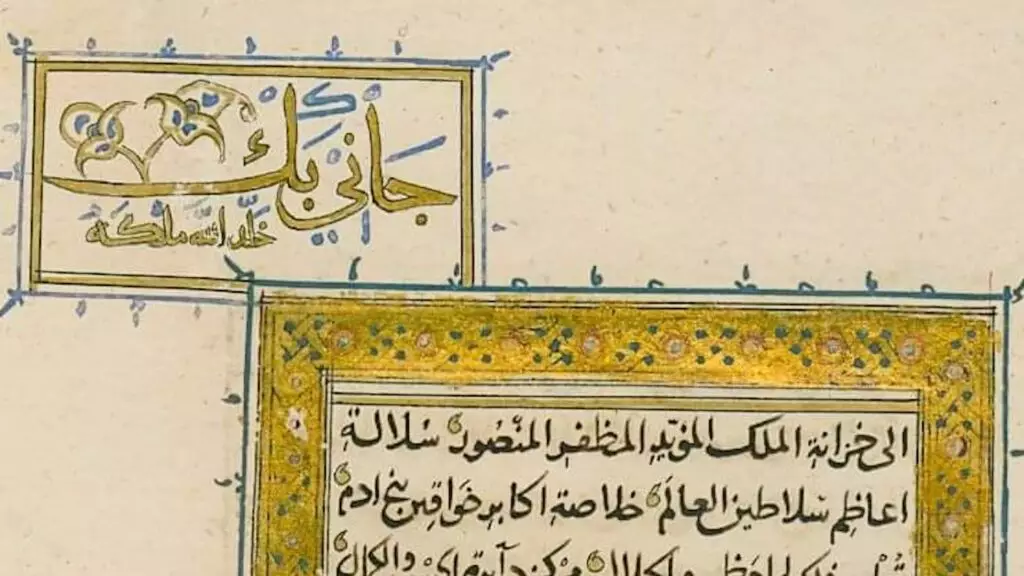 جاني بك
خلد الله ملكه
الى خزانة الملك المؤيد المظفر المنصور سلالة
اعاظم سلاطين العالم خلاصة اكابر خواقين بنی ادم